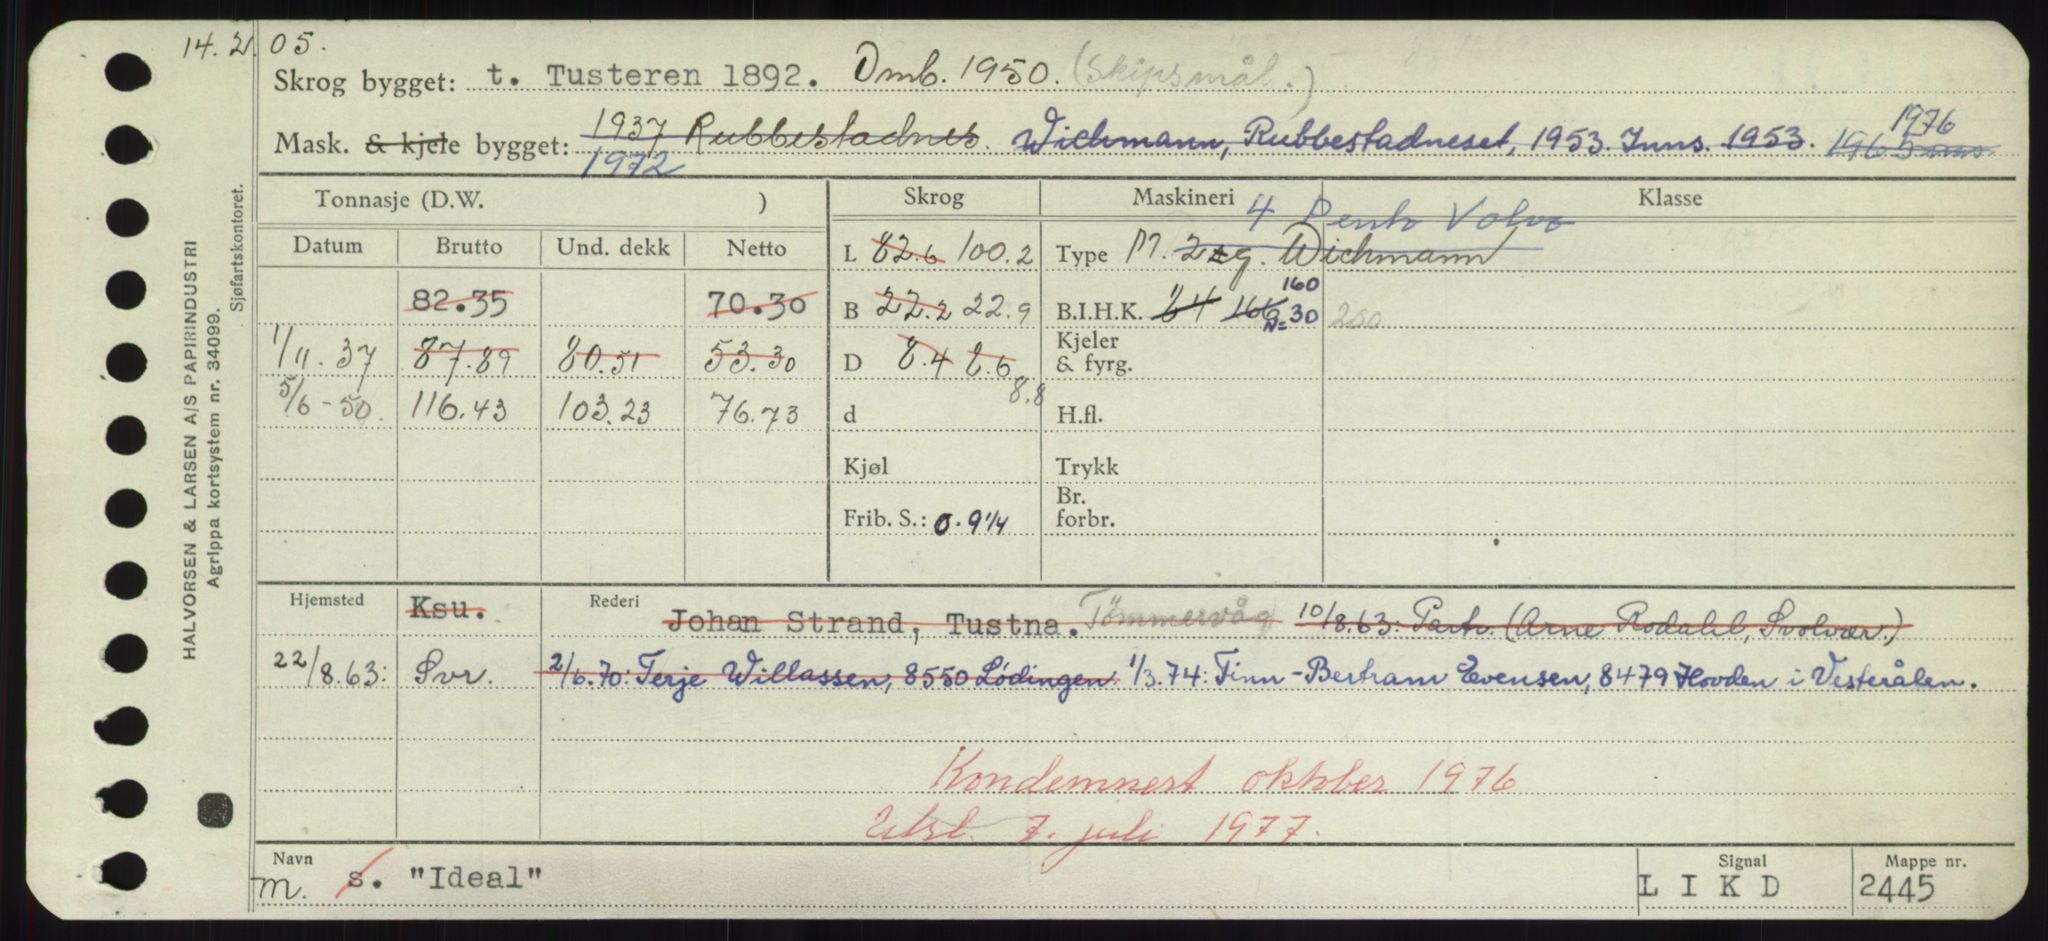 14. 2. 05.
Skrog bygget: t. Tusteren 1892. Omb. 1950. (Skipsmål.)
1976
Mask. & kjele bygget: 1937 Rubbestadnes. Wichmann, Rubbestadneset, 1953. Inns. 1953. 1965 inns.
1972
Tonnasje (D.W. ) Skrog Maskineri Klasse
4 Penta Volvo
Datum Brutto Und. dekk Netto L 82.6 100.2 Type M. 2 sg. Wichmann
160
82.35 70.30 B 22.2 22.9 B.I.H.K. 64 166 N=30 200
1/11. 37 87.89 80.51 53.30 D 8.4 8.6 Kjeler & fyrg.
8.8
5/6 - 50. 116.43 103.23 76.73 d H.fl.
Kjøl Trykk
Frib. S.: 0. 9 1/4 Br. forbr.
Hjemsted Ksu. Rederi Johan Strand, Tustna. Tömmervåg 10/8.63: Partr. (Arne Rodahl, Svolvær.)
22/8.63: Svr. 2/6.70: Terje Willassen, 8550 Lødingen. 1/3.74: Finn-Bertram Evensen, 8479 Hovden i Vesterålen.
Kondemnert oktober 1976
Utsl. 7. juli 1977.
Navn Signal Mappe nr.
m. s. "Ideal" L I K D 2445
HALVORSEN & LARSEN A/S PAPIRINDUSTRI
Agrippa kortsystem nr. 34099.
Sjøfartskontoret.